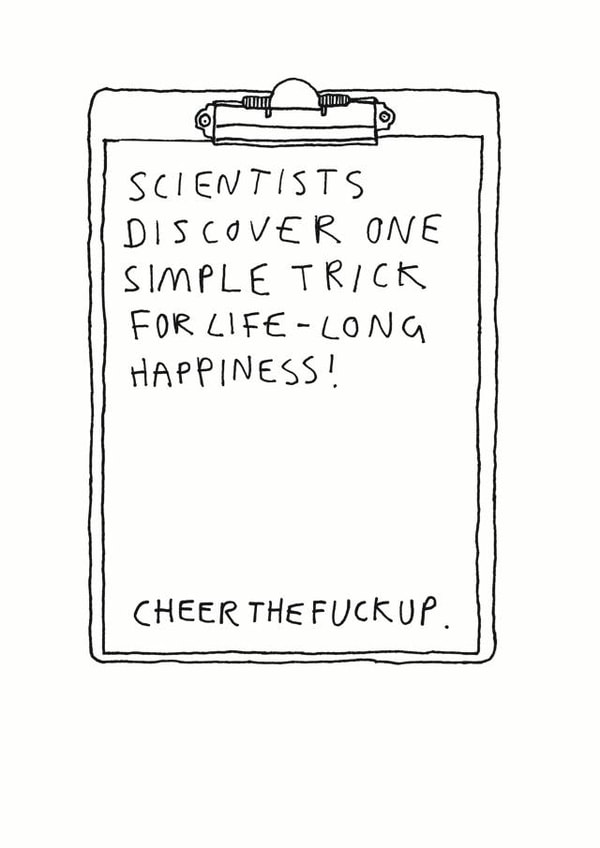 SCIENTISTS
DISCOVER ONE
SIMPLE TRICK
FOR LIFE-LONG
HAPPINESS!
CHEER THE FUCK UP.